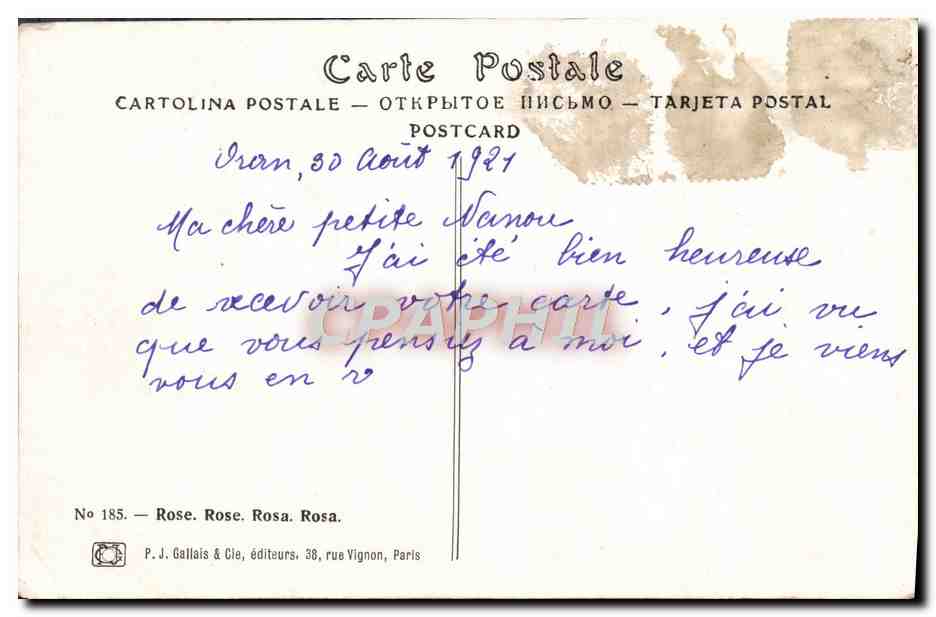 Carte Postale
CARTOLINA POSTALE — ОТКРЫТОЕ ПИСЬМО — TARJETA POSTAL
POSTCARD
Oran, 30 Août 1921
Ma chère petite Nanou
J'ai été bien heureuse
de recevoir votre carte, j'ai vu
que vous pensiez à moi, et je viens
vous en r
CPAPHIL
No 185. — Rose. Rose. Rosa. Rosa.
P. J. Gallais & Cie, éditeurs, 38, rue Vignon, Paris